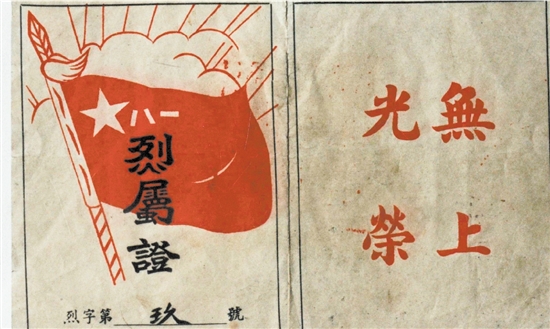 八一
烈屬證
烈字第玖號
無上
光榮